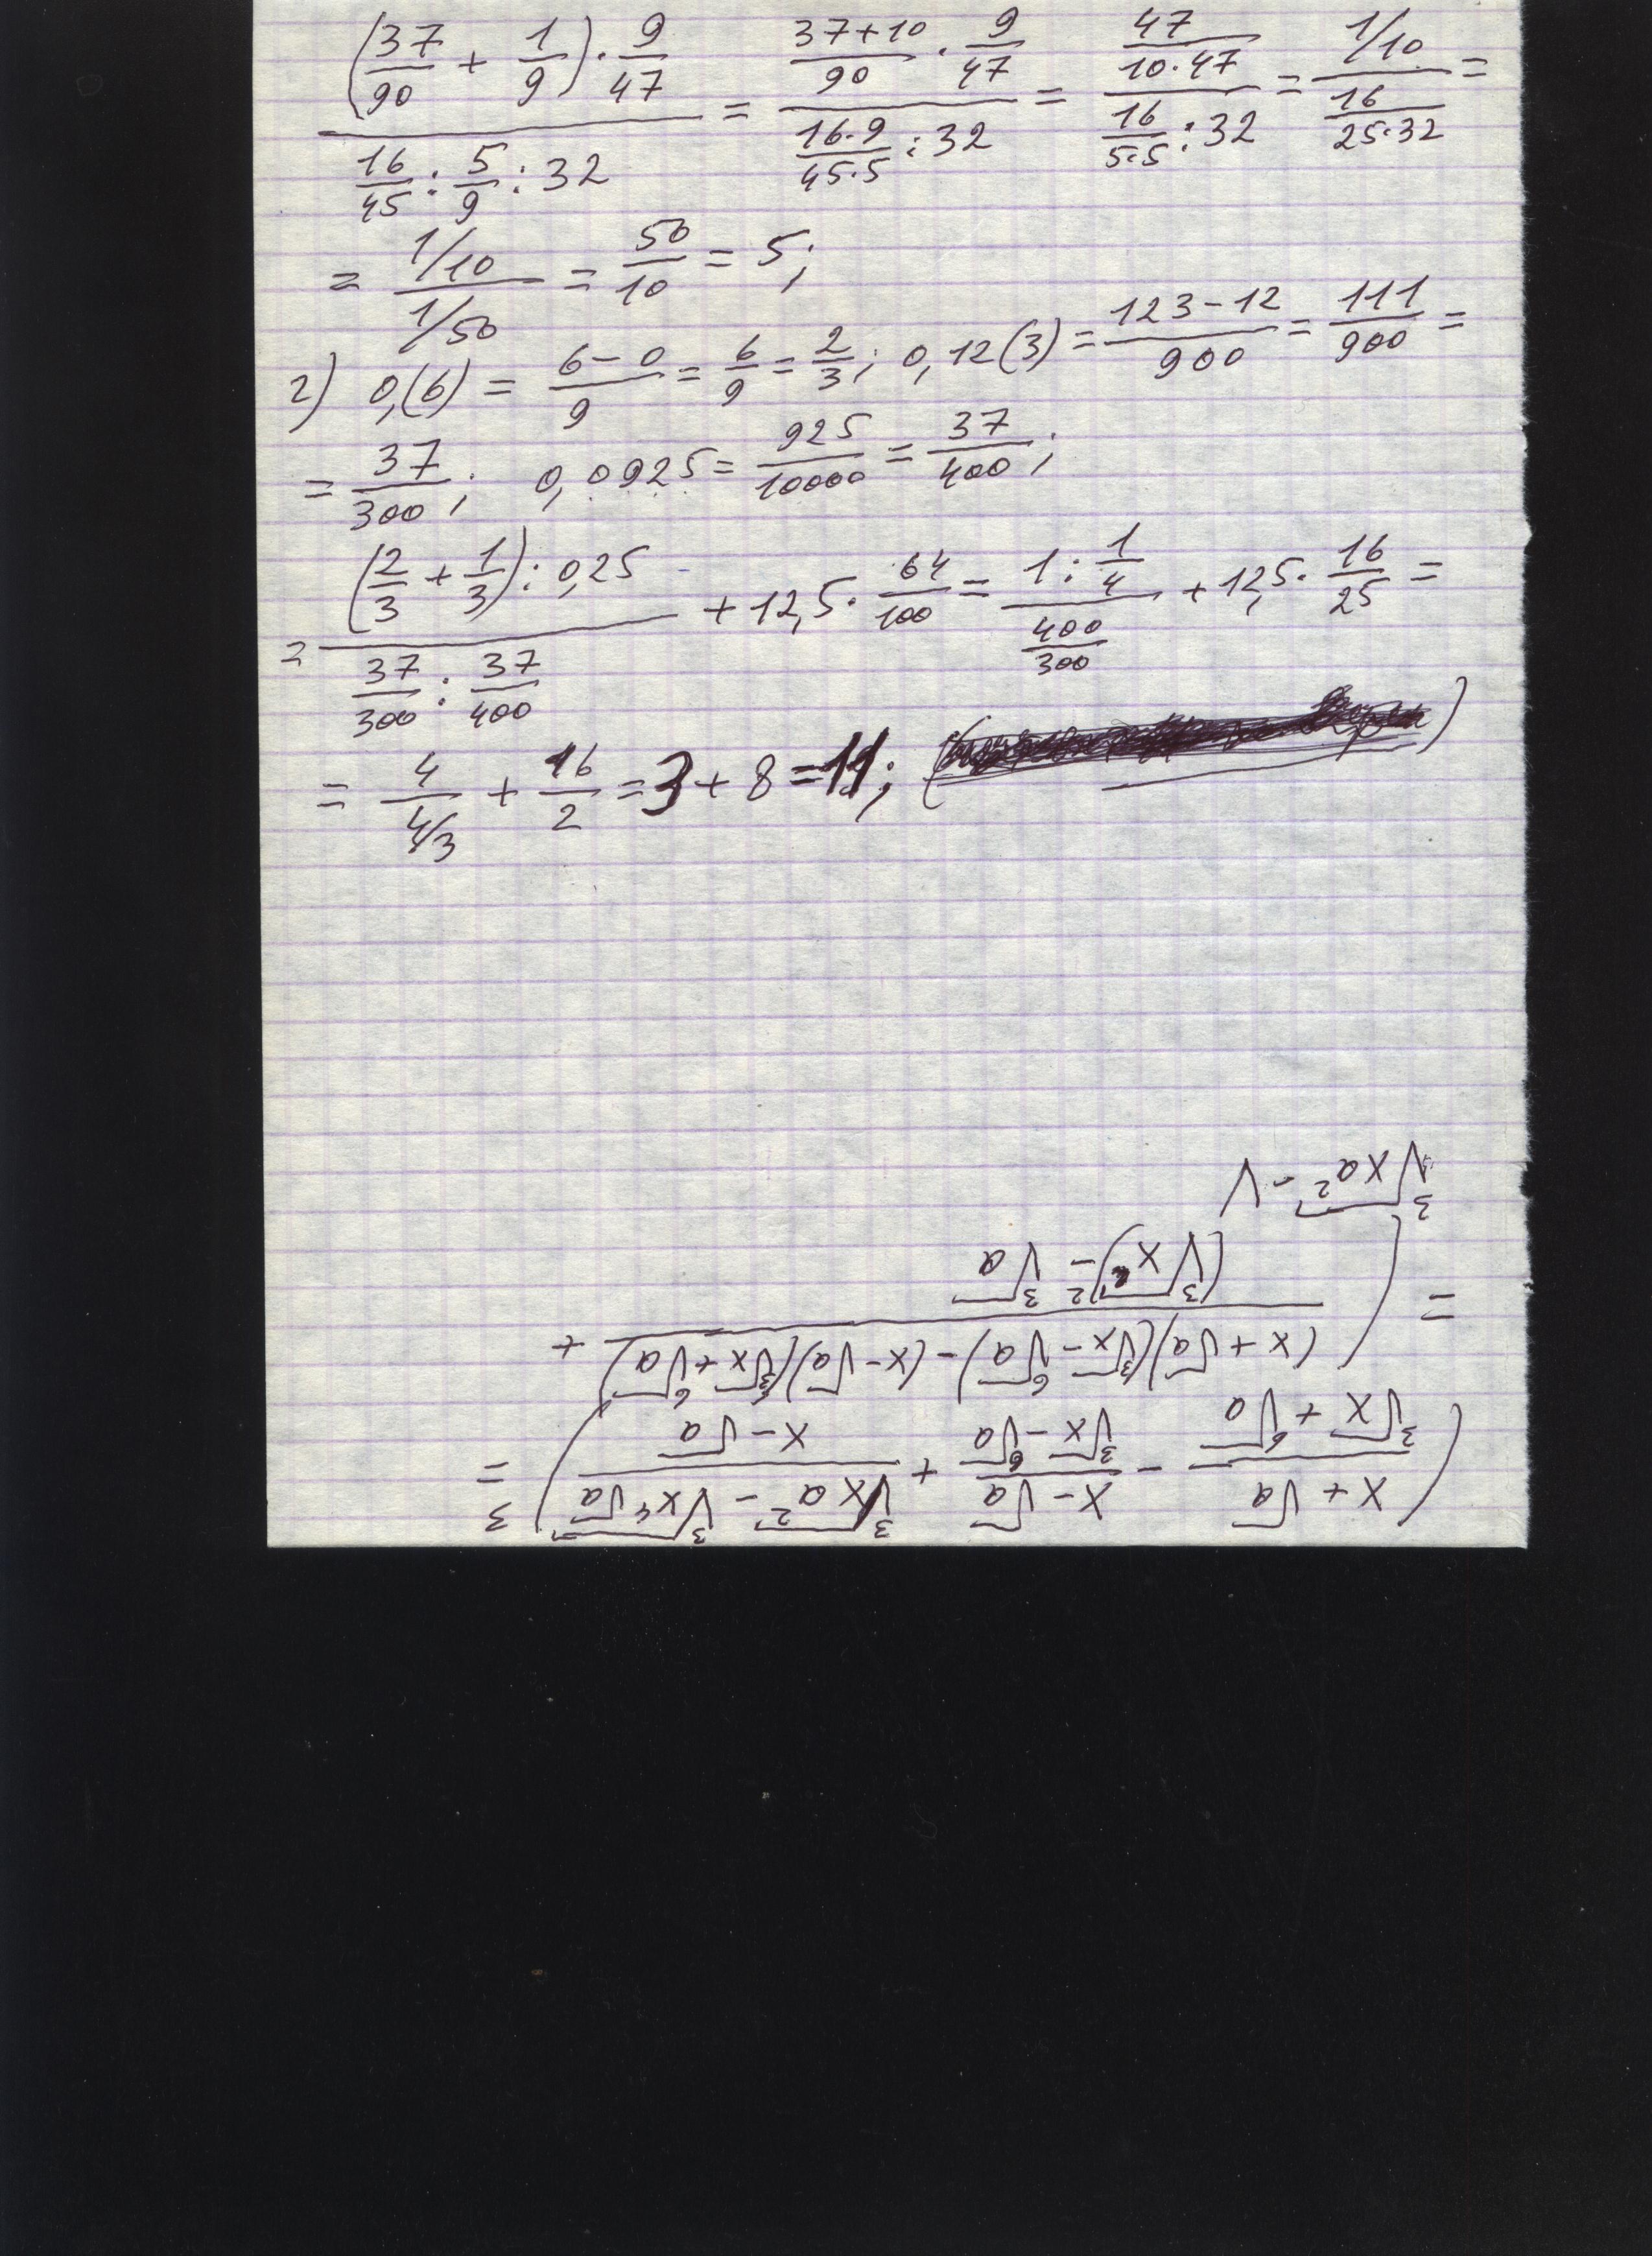 ((37/90 + 1/9) · 9/47) / (16/45 : 5/9 : 32) = ((37+10)/90 · 9/47) / ((16·9)/(45·5) : 32) = (47/(10·47)) / (16/(5·5) : 32) = (1/10) / (16/(25·32)) =
= (1/10) / (1/50) = 50/10 = 5;
2) 0,(6) = (6-0)/9 = 6/9 = 2/3; 0,12(3) = (123-12)/900 = 111/900 =
= 37/300; 0,0925 = 925/10000 = 37/400;
= ((2/3 + 1/3) : 0,25) / (37/300 : 37/400) + 12,5 · 64/100 = (1 : 1/4) / (400/300) + 12,5 · 16/25 =
= 4/(4/3) + 16/2 = 3 + 8 = 11;
((x+√a)/(∛x + ⁶√a) - (x-√a)/(∛x - ⁶√a) + (∛(xa²) - ∛(x⁴√a))/(x-√a))³ =
= (((x+√a)(∛x - ⁶√a) - (x-√a)(∛x + ⁶√a)) / ((∛x)² - ∛a) +
∛(xa²) - √